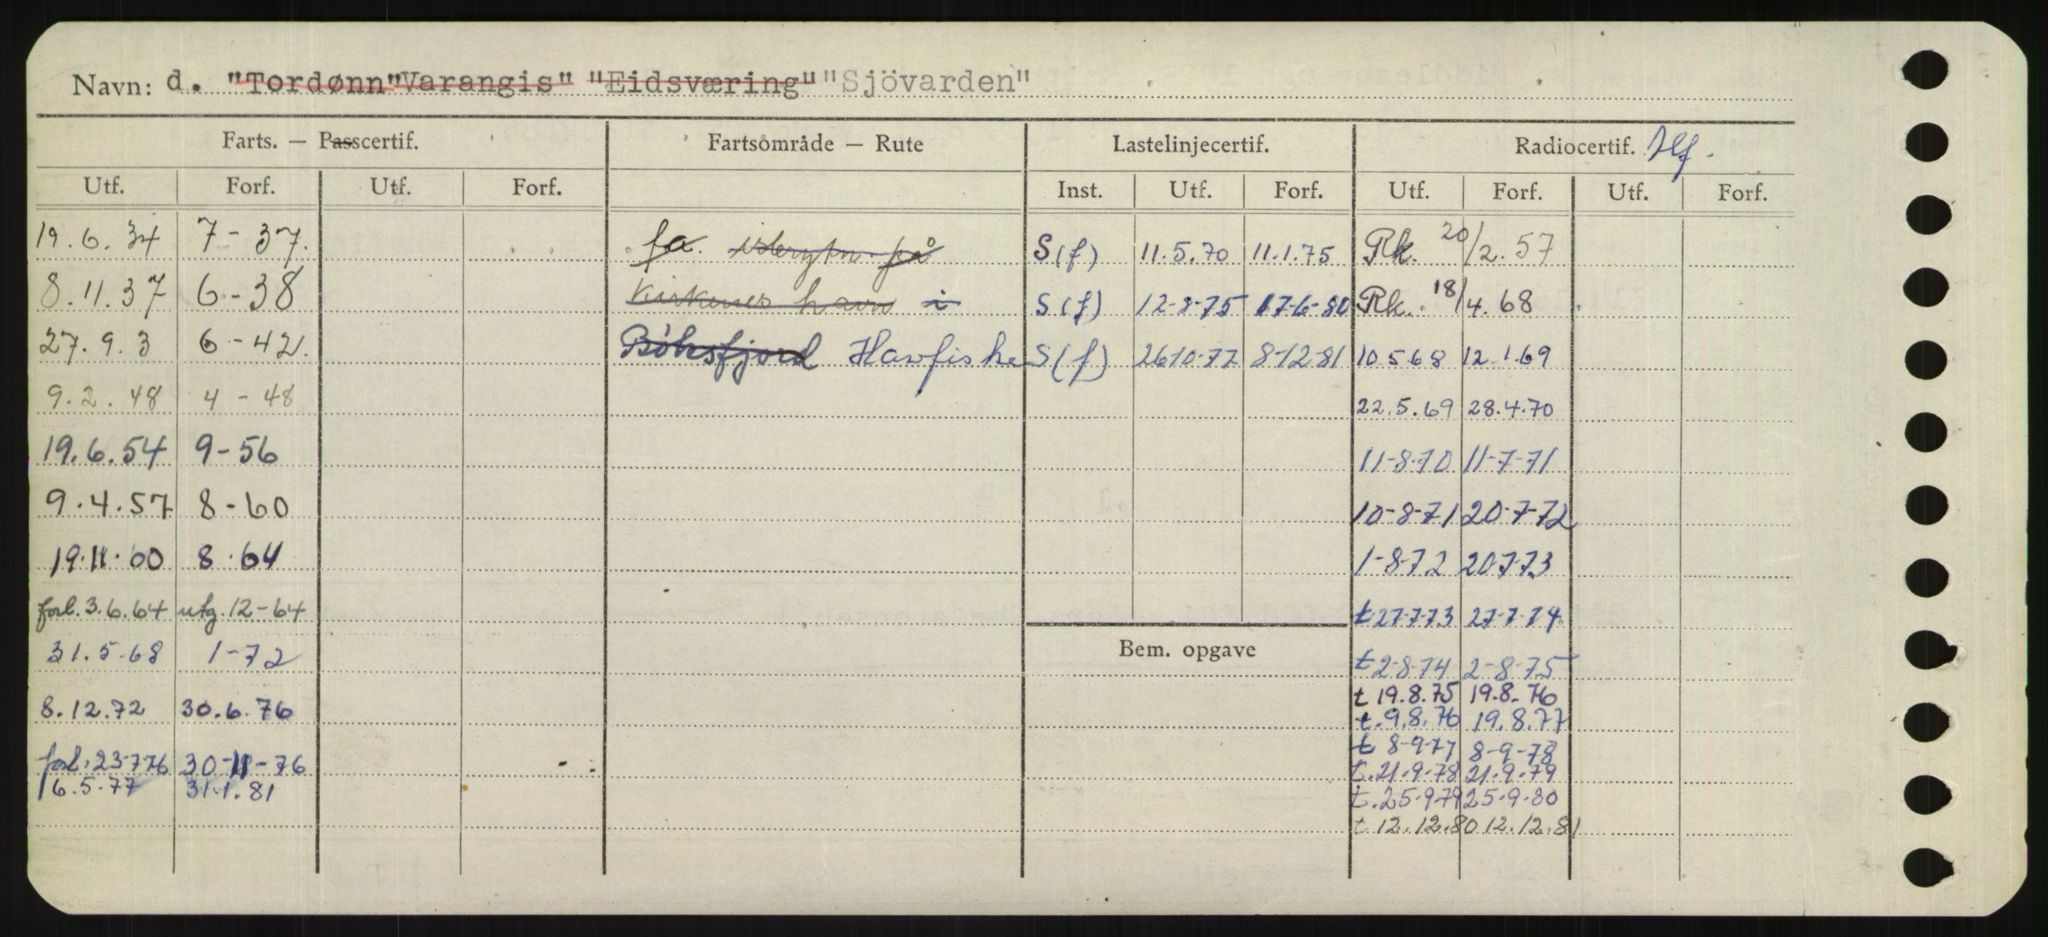 Navn: d. "Tordønn" Varangis" "Eidsværing" "Sjövarden"
Farts. — Passcertif. Fartsområde — Rute Lastelinjecertif. Radiocertif.
Utf. Forf. Utf. Forf. Inst. Utf. Forf. Utf. Forf. Utf. Forf.
19.6.34 7-37. fa. på S(f) 11.5.70 11.1.75 Rk. 20/2.57
8.11.37 6-38 Kirkenes havn i S(f) 12-8-75 17-6-80 Rk. 18/4.68
27.9.3 6-42. Bøksfjord Havfiske S(f) 26.10.77 8-12-81 10.5.68 12.1.69
9.2.48 4-48 22.5.69 28.4.70
19.6.54 9-56 11-8-70 11-7-71
9.4.57 8-60 10-8-71 20-7-72
19.11.60 8.64 1-8-72 20-7-73
forl. 3.6.64 utg. 12-64 t 27-7-73 27-7-74
Bem. opgave
31.5.68 1-72 t 2-8-74 2-8-75
t 19.8.75 19.8.76
8.12.72 30.6.76 t. 9.8.76 19.8.77
t 8-9-77 8-9-78
forl. 23-7-76 30-11-76 t. 21.9.78 21.9.79
16.5.77 31.1.81 t. 25.9.79 25.9.80
t 12.12.80 12.12.81